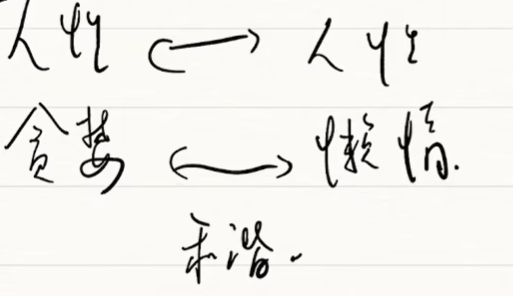 人性 ↔ 人性
贪婪 ↔ 懒惰.
和谐.